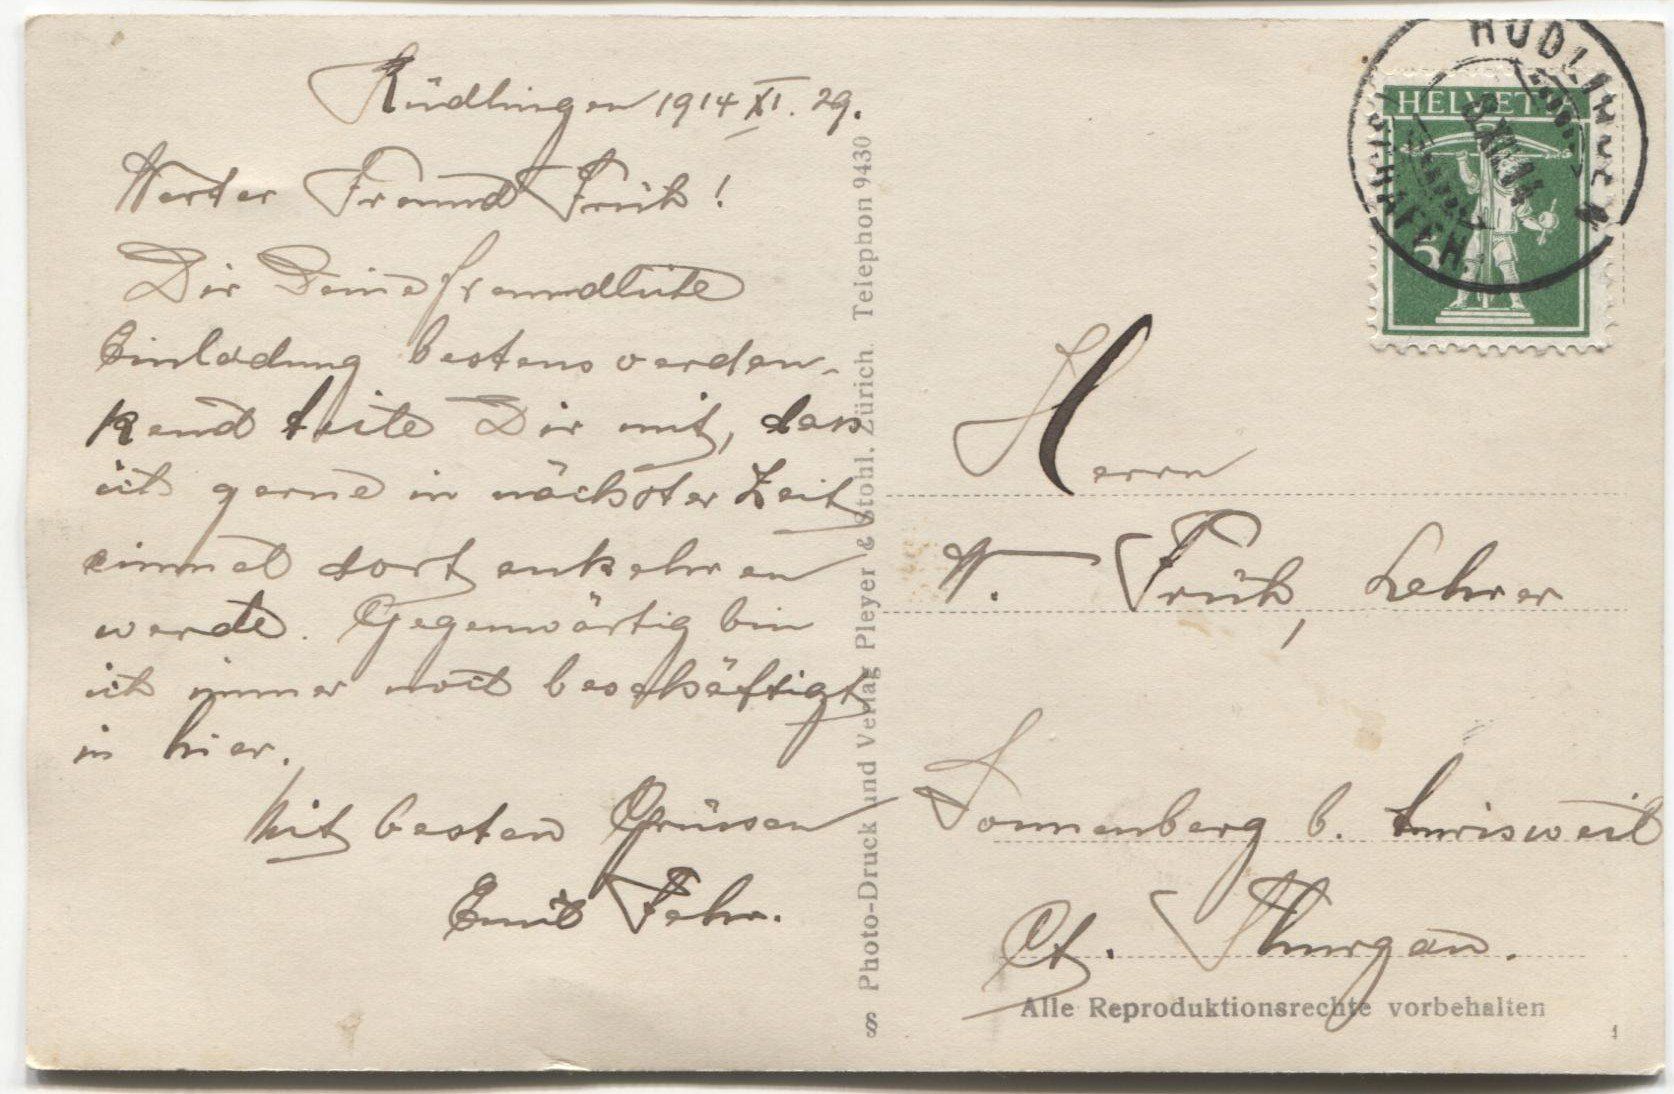 Rüdlingen 1914 XI. 29.
Werter Freund Früh!
Dir Deine freundliche
Einladung bestens verdan-
kend teile Dir mit, dass
ich gerne in nächster Zeit
einmal dort ankehren
werde. Gegenwärtig bin
ich immer noch beschäftigt
in hier.
Mit besten Grüssen
Emil Fehr.
§ Photo-Druck und Verlag Pleyer & Stohl. Zürich. Telephon 9430
RÜDLINGEN
(SCHAFFH.)
XII.14
HELVETIA
5
Herrn
W. Früh, Lehrer
Sonnenberg b.
Ct. Thurgau.
Alle Reproduktionsrechte vorbehalten
1